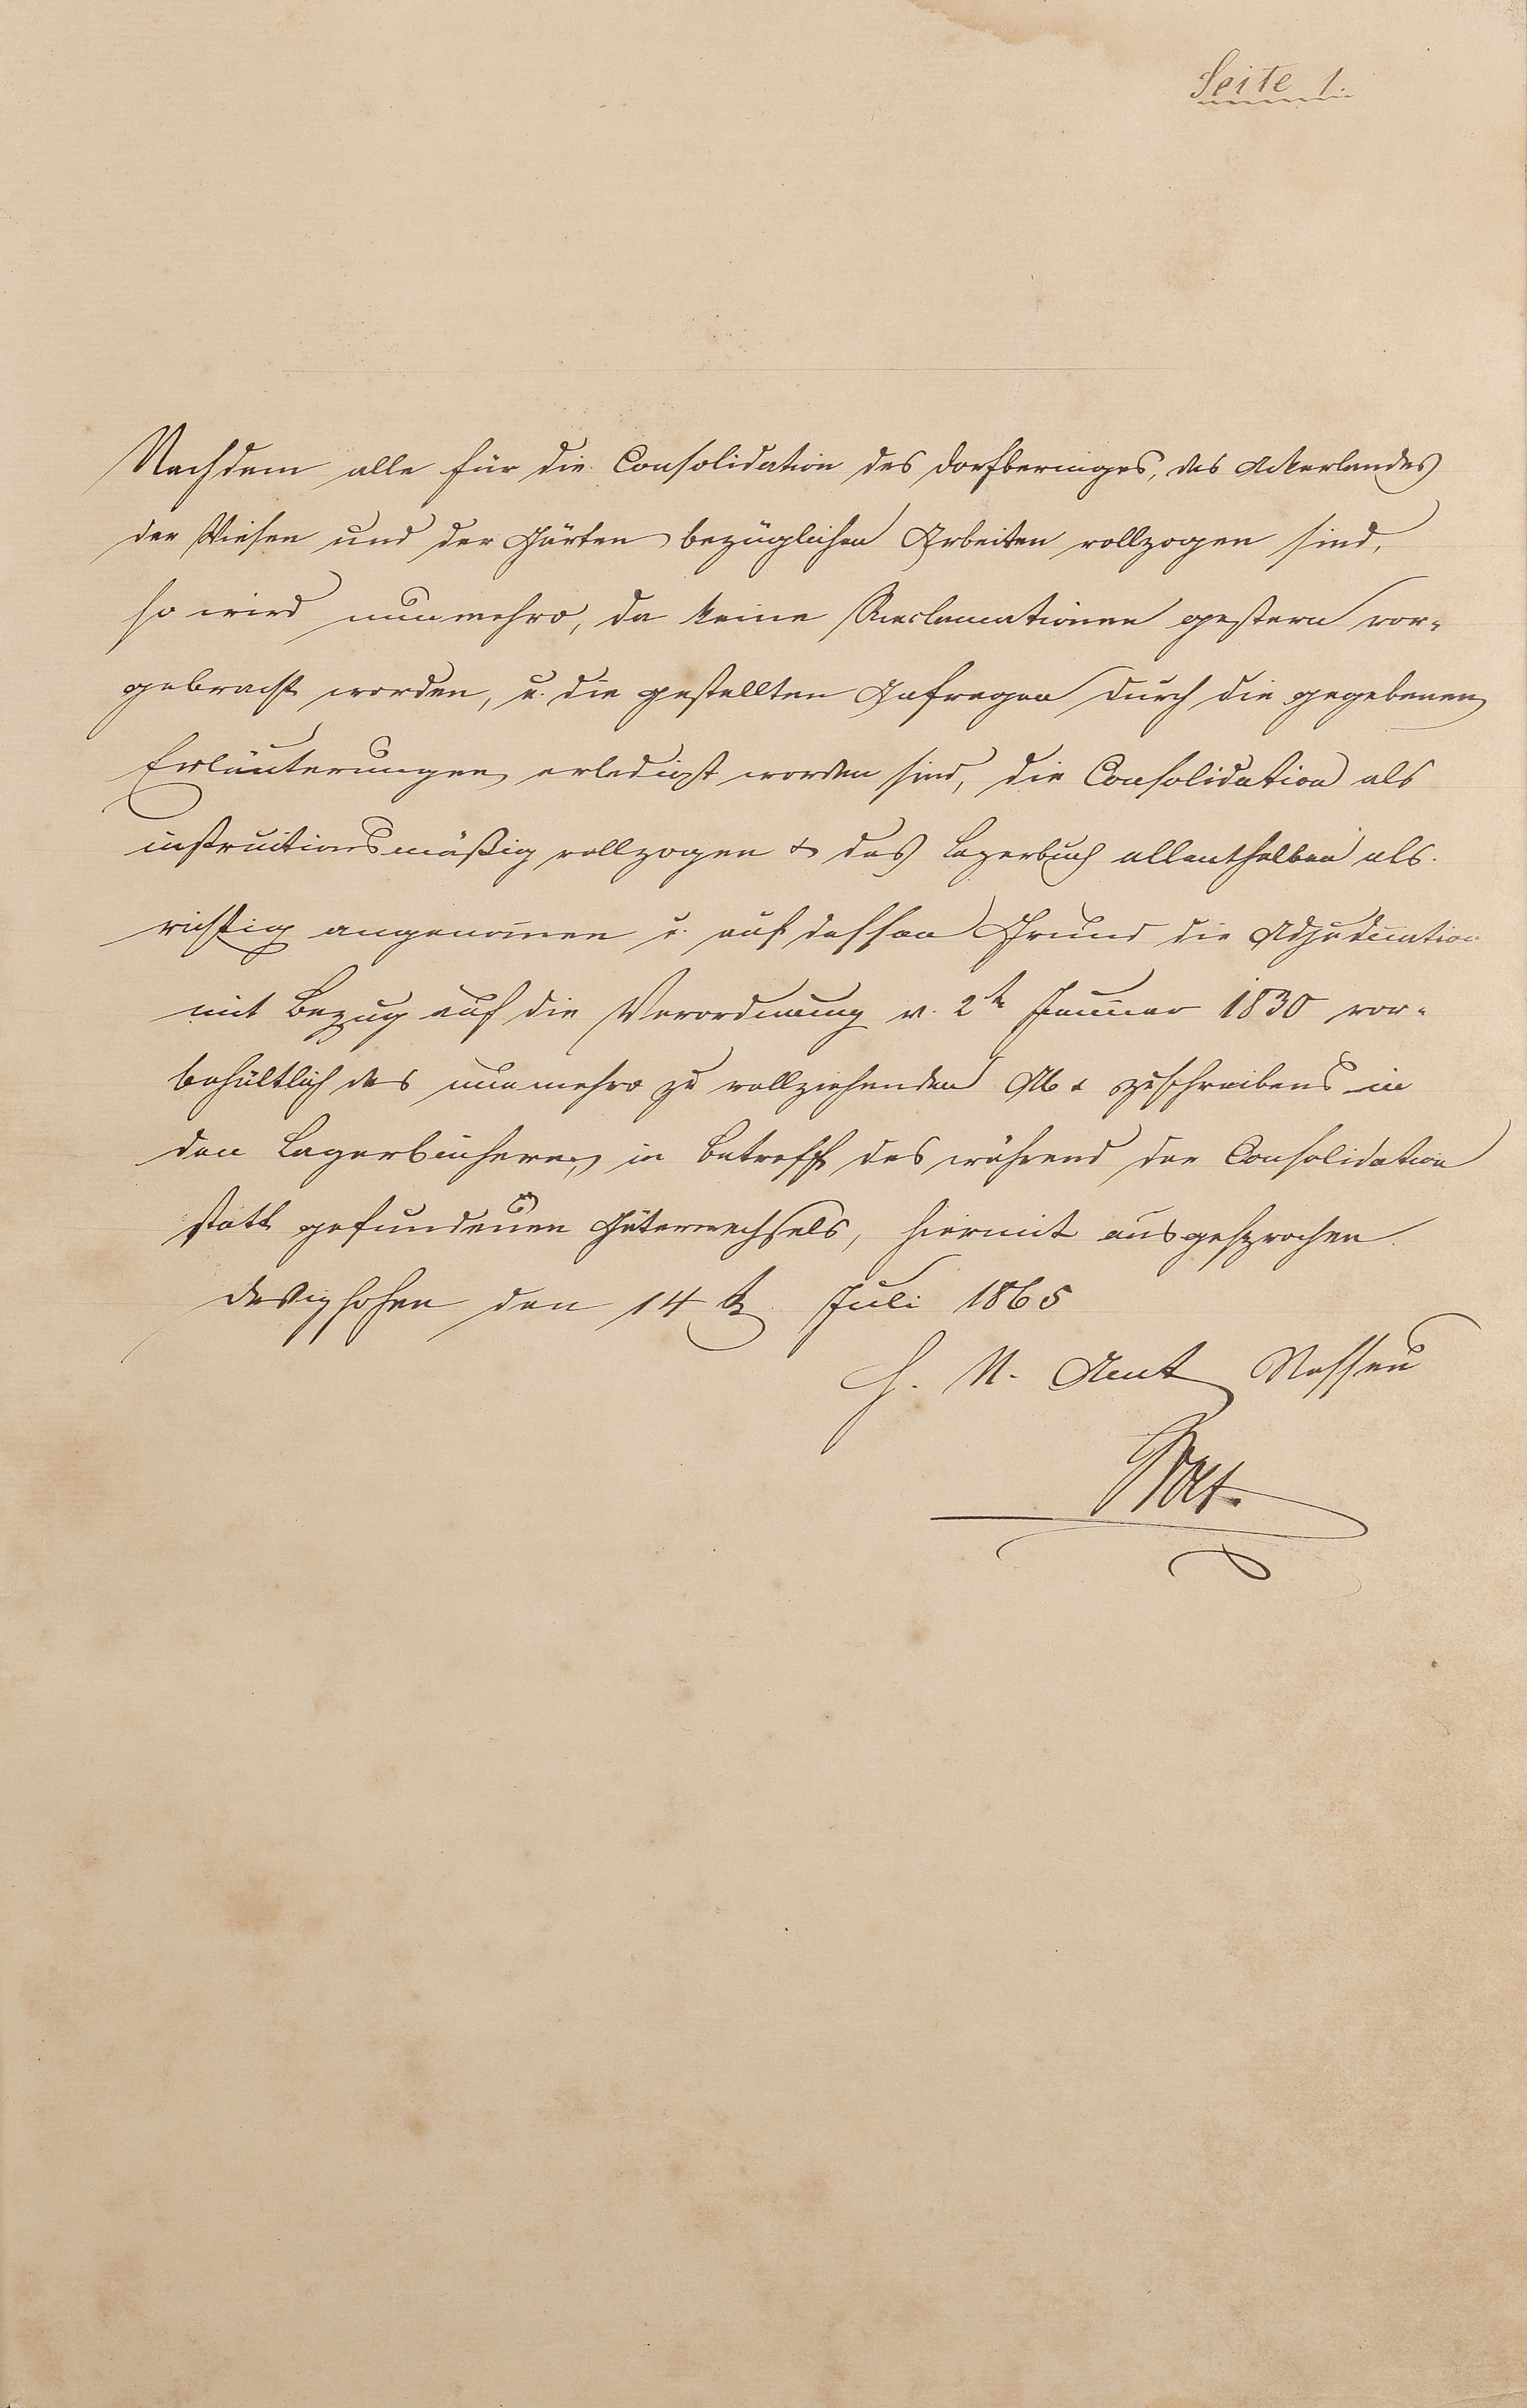 Seite 1.
Nachdem alle für die Consolidation des Dorfberinges, des Ackerlandes
der Wiesen und der Gärten bezüglichen Arbeiten vollzogen sind,
so wird nunmehro, da keine Reclamationen gestern vor-
gebracht worden, u. die gestellten Anfragen durch die gegebenen
Erläuterungen erledigt worden sind, die Consolidation als
instructionsmäßig vollzogen & das Lagerbuch allenthalben als
richtig angenom̄en u. auf dessen Grund die Adjudication
mit Bezug auf die Verordnung v. 2t Januar 1830 vor-
behältlich des nunmehro zu vollziehenden Ab & zuschreibens in
den Lagerbüchern, in Betreff des während der Consolidation
statt gefundenen Güterwechsels, hiermit ausgesprochen.
den 14 t Juli 1865
H. N. Amt Nassau